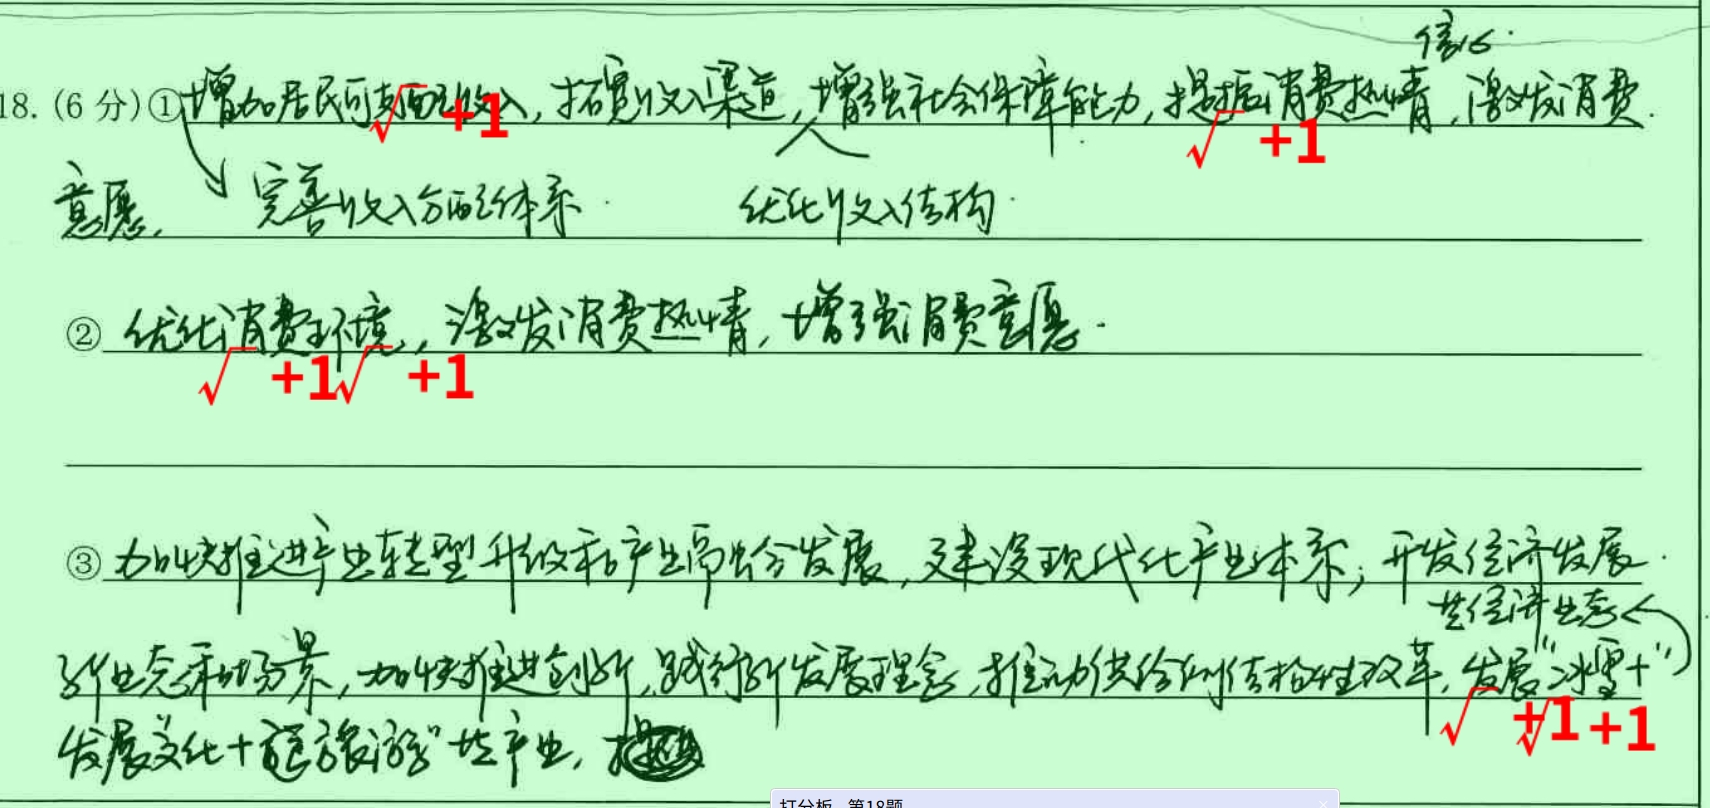 信心.
18. (6 分) ①增加居民可支配收入, 拓宽收入渠道, 增强社会保障能力, 提振消费热情, 激发消费
+1
+1
意愿. 完善收入分配体系. 优化收入结构.
② 优化消费环境, 激发消费热情, 增强消费意愿.
+1 +1
③ 加快推进产业转型升级和产业融合发展, 建设现代化产业体系; 开发经济发展
等经济业态
新业态和场景, 加快推进创新, 践行新发展理念, 推动供给侧结构性改革, 发展"冰雪+"
+1 +1
发展文化+旅游"等产业,
打分板 第18题